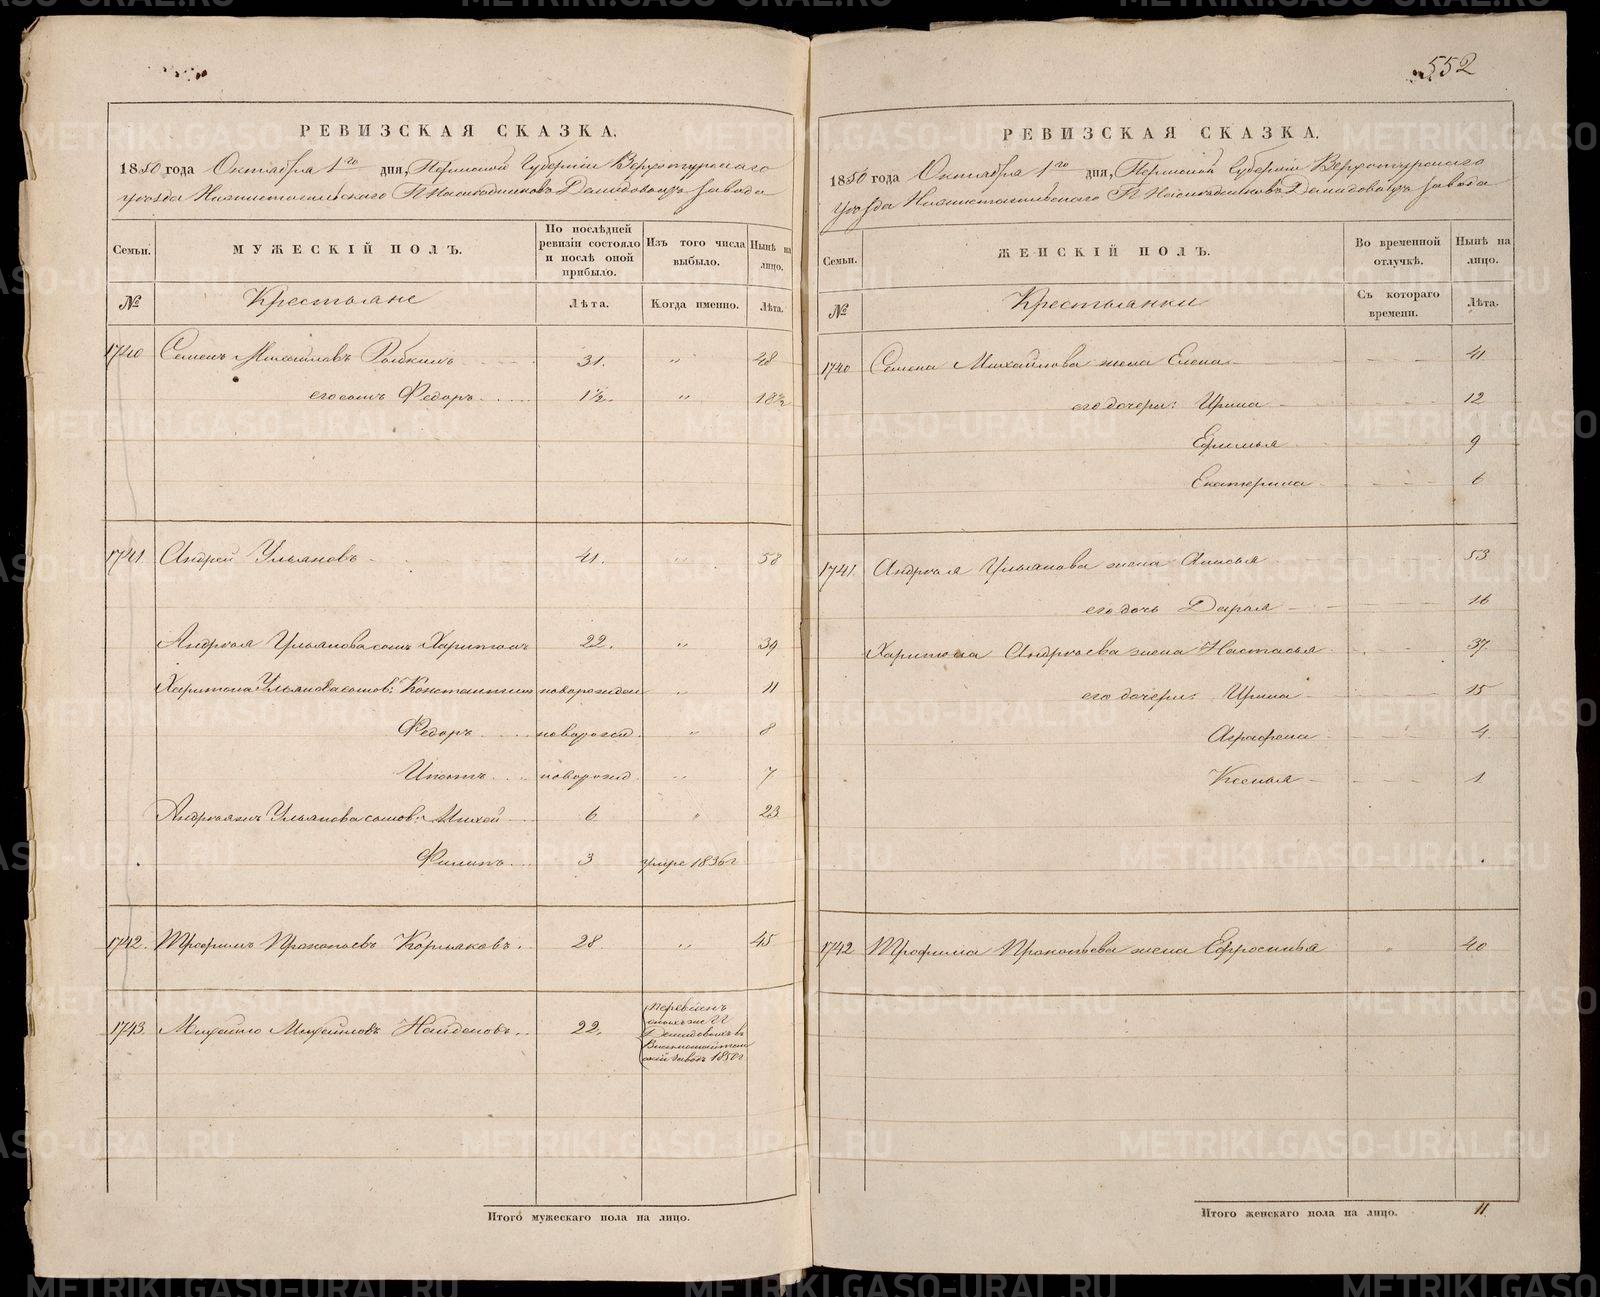 552
РЕВИЗСКАЯ СКАЗКА.
1850 года Октября 1го дня, Пермской Губерніи Верхотурскаго
уѣзда Нижнетагильскаго Гг Наслѣдниковъ Демидовыхъ завода
Семьи.
МУЖЕСКІЙ ПОЛЪ.
По послѣдней ревизіи состояло и послѣ оной прибыло.
Изъ того числа выбыло.
Нынѣ на лицо.
№
Крестьяне
Лѣта.
Когда именно.
Лѣта.
1740 Семенъ Михайловъ 31. " 48
его сынъ Федоръ 1½. " 18½
1741. Андрей Ульяновъ 41. " 58
Андрея Ульянова сынъ Харитонъ 22. " 39
Харитона Ульянова сынов: Константинъ новорожден " 11
Федоръ новорожд. " 8
Ипатъ новорожд " 7
Ульянова сынов: Михей 6 " 23
Филипъ 3 умре 1836г
1742. Трофимъ Прокопьевъ Кормаковъ. 28 " 45
1743. Михайло Михайловъ Найденовъ. 22.
Демидовыхъ въ
завод 1850г
Итого мужескаго пола на лицо.
РЕВИЗСКАЯ СКАЗКА.
1850 года Октября 1го дня, Пермской Губерніи Верхотурскаго
Уѣзда Нижнетагильскаго Гг Наслѣдниковъ Демидовыхъ завода
Семьи.
ЖЕНСКІЙ ПОЛЪ.
Во временной отлучкѣ.
Нынѣ на лицо.
№
Крестьянки
Съ котораго времени.
Лѣта.
1740 Семена Михайлова жена Елена 41
его дочери: Ирина 12
Ефимья 9
Екатерина 6
1741. Андрея Ульянова жена Анисья 53
его дочь Дарья 16
Харитона Андреева жена Настасья 37
его дочери: Ирина 15
Аграфена 4
Ксенья 1
1742 Трофима Прокопьева жена Ефросинья " 40
Итого женскаго пола на лицо. 11
METRIKI.GASO-URAL.RU